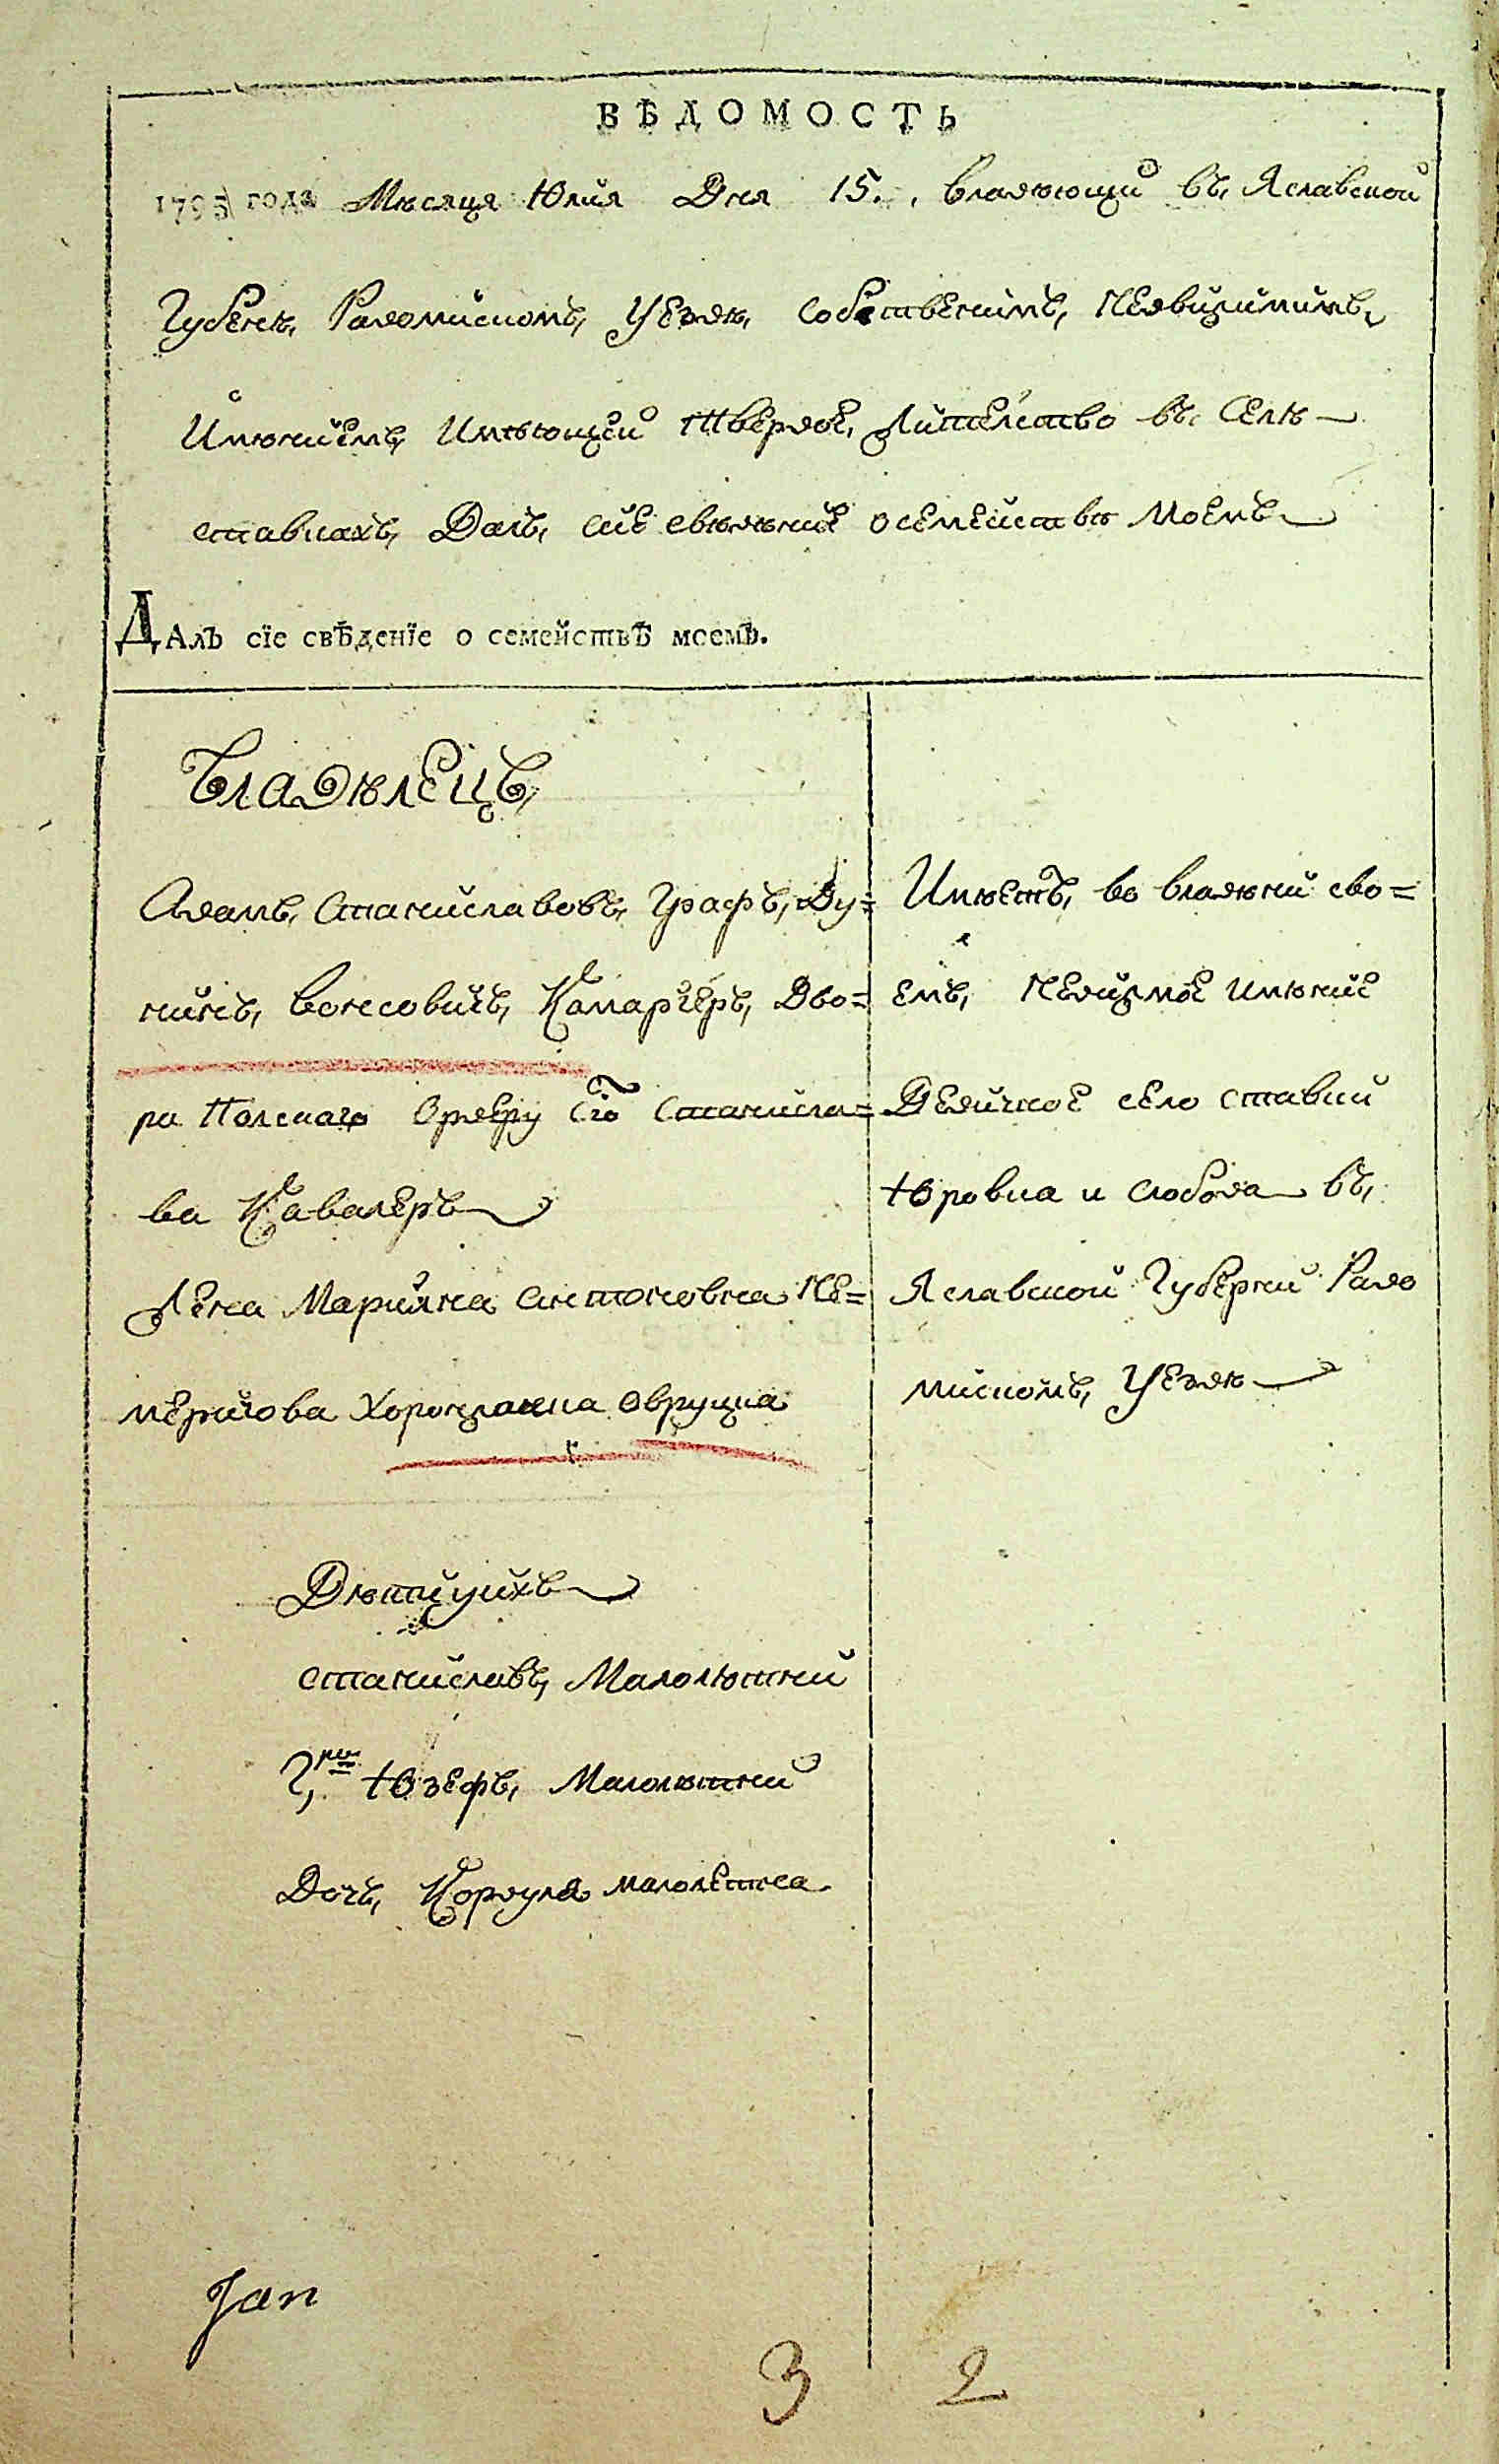 ВѢДОМОСТЬ
1795 года Мѣсяца Юлия Дня 15. , владѣющий въ Яславской
Губенѣ, Радомискомъ, Уездѣ, собственимъ, Недвижимимъ,
Имѣниемъ, Имѣющей тверdoе, Жителство въ Селѣ
ставкахъ, Далъ, сие свѣдѣние о семействѣ Моемъ
Далъ сїе свѣденїе о семействѣ моемъ.
Владѣлецъ,
Адамъ, Станиславовъ, Графъ, Ду=
нинъ, вонсовичъ, Камаргеръ, Дво=
ра Полскаго Ордеру Сго Станисла=
ва Кавалеръ
Жена Марияна Антоновна Не=
мериова Хоронжанка овруцка
Дѣти уихъ
станиславъ, Малолѣтний
2, Юзефъ, Малолѣтний
Дочъ, Кордуля малолетна
Имѣетъ, во владѣнии сво=
емъ, Недижмое имѣние
Дедичное село ставки
Юровка и слобода въ,
Яславской Губернии Радо
мискомъ, Уездѣ
Jan
3 2